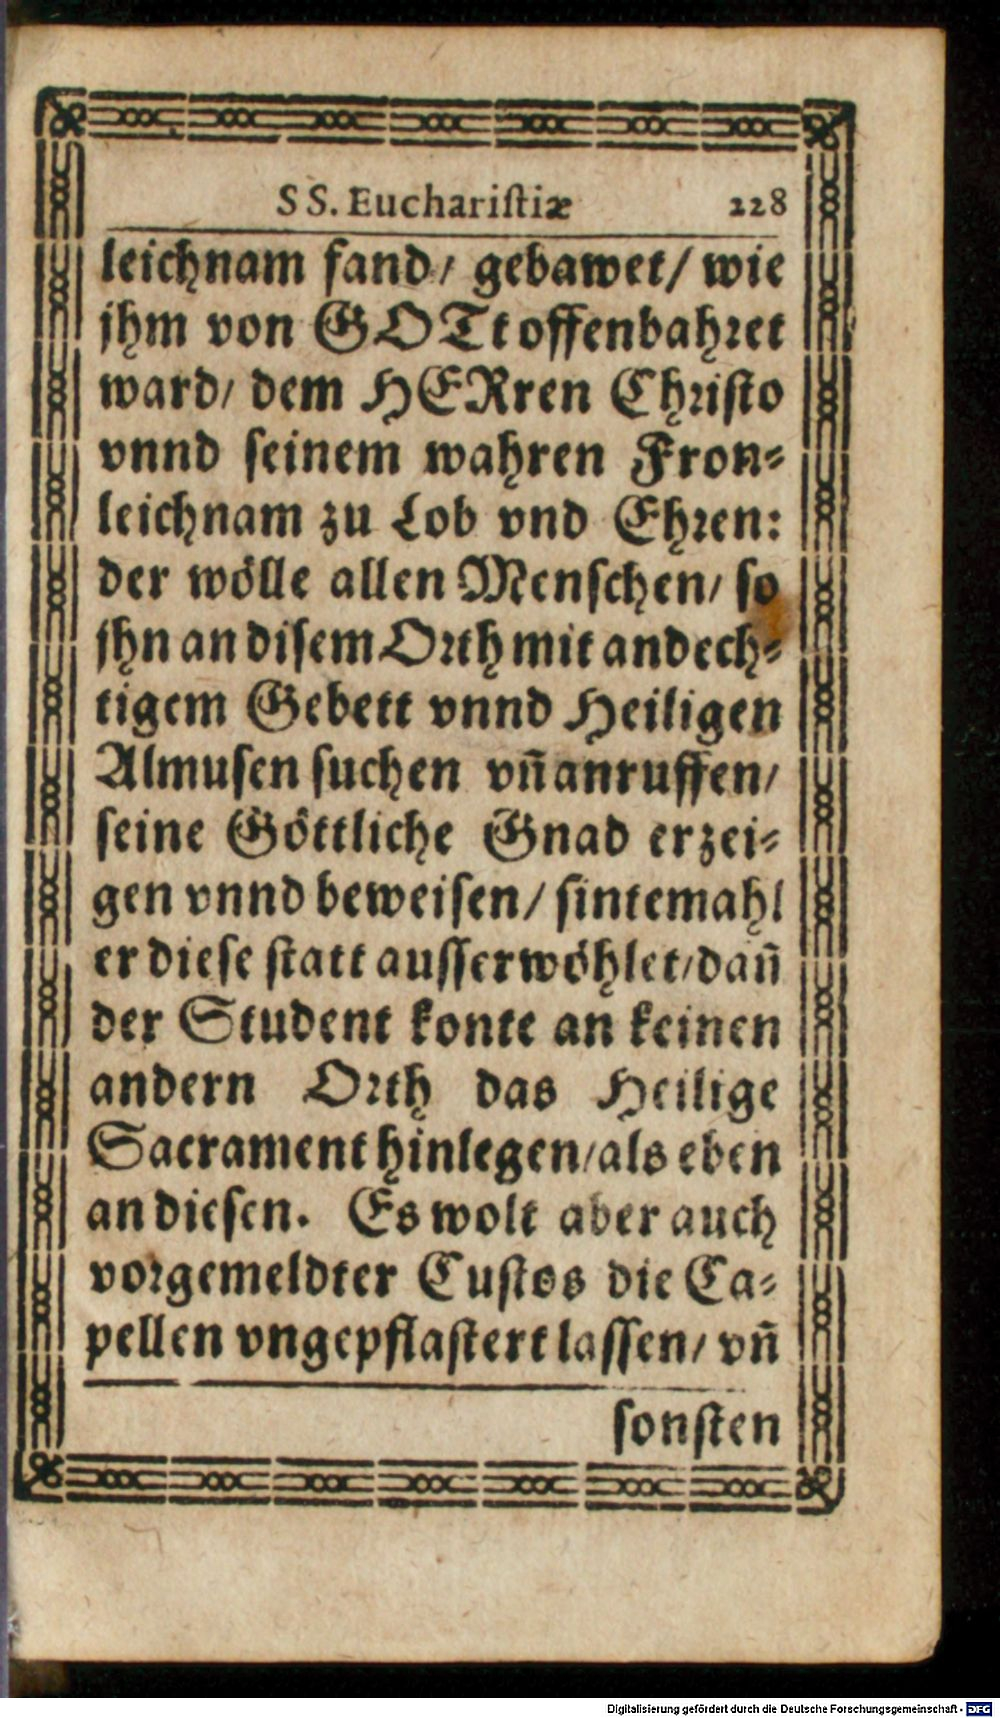 SS. Euchariſtiæ 228
leichnam fand/ gebawet/ wie
jhm von GOTt offenbahret
ward/ dem HERren Chriſto
vnnd ſeinem wahren Fron⸗
leichnam zu Lob vnd Ehren:
der wölle allen Menſchen/ ſo
jhn an diſem Orth mit andech⸗
tigem Gebett vnnd Heiligen
Almuſen ſuchen vn̄ anruffen/
ſeine Göttliche Gnad erzei⸗
gen vnnd beweiſen/ ſintemahl
er dieſe ſtatt auſſerwöhlet/ dan̄
der Student konte an keinen
andern Orth das Heilige
Sacrament hinlegen/ als eben
an dieſen. Es wolt aber auch
vorgemeldter Cuſtos die Ca⸗
pellen vngepflaſtert laſſen/ vn̄
ſonſten
Digitalisierung gefördert durch die Deutsche Forschungsgemeinschaft - DFG